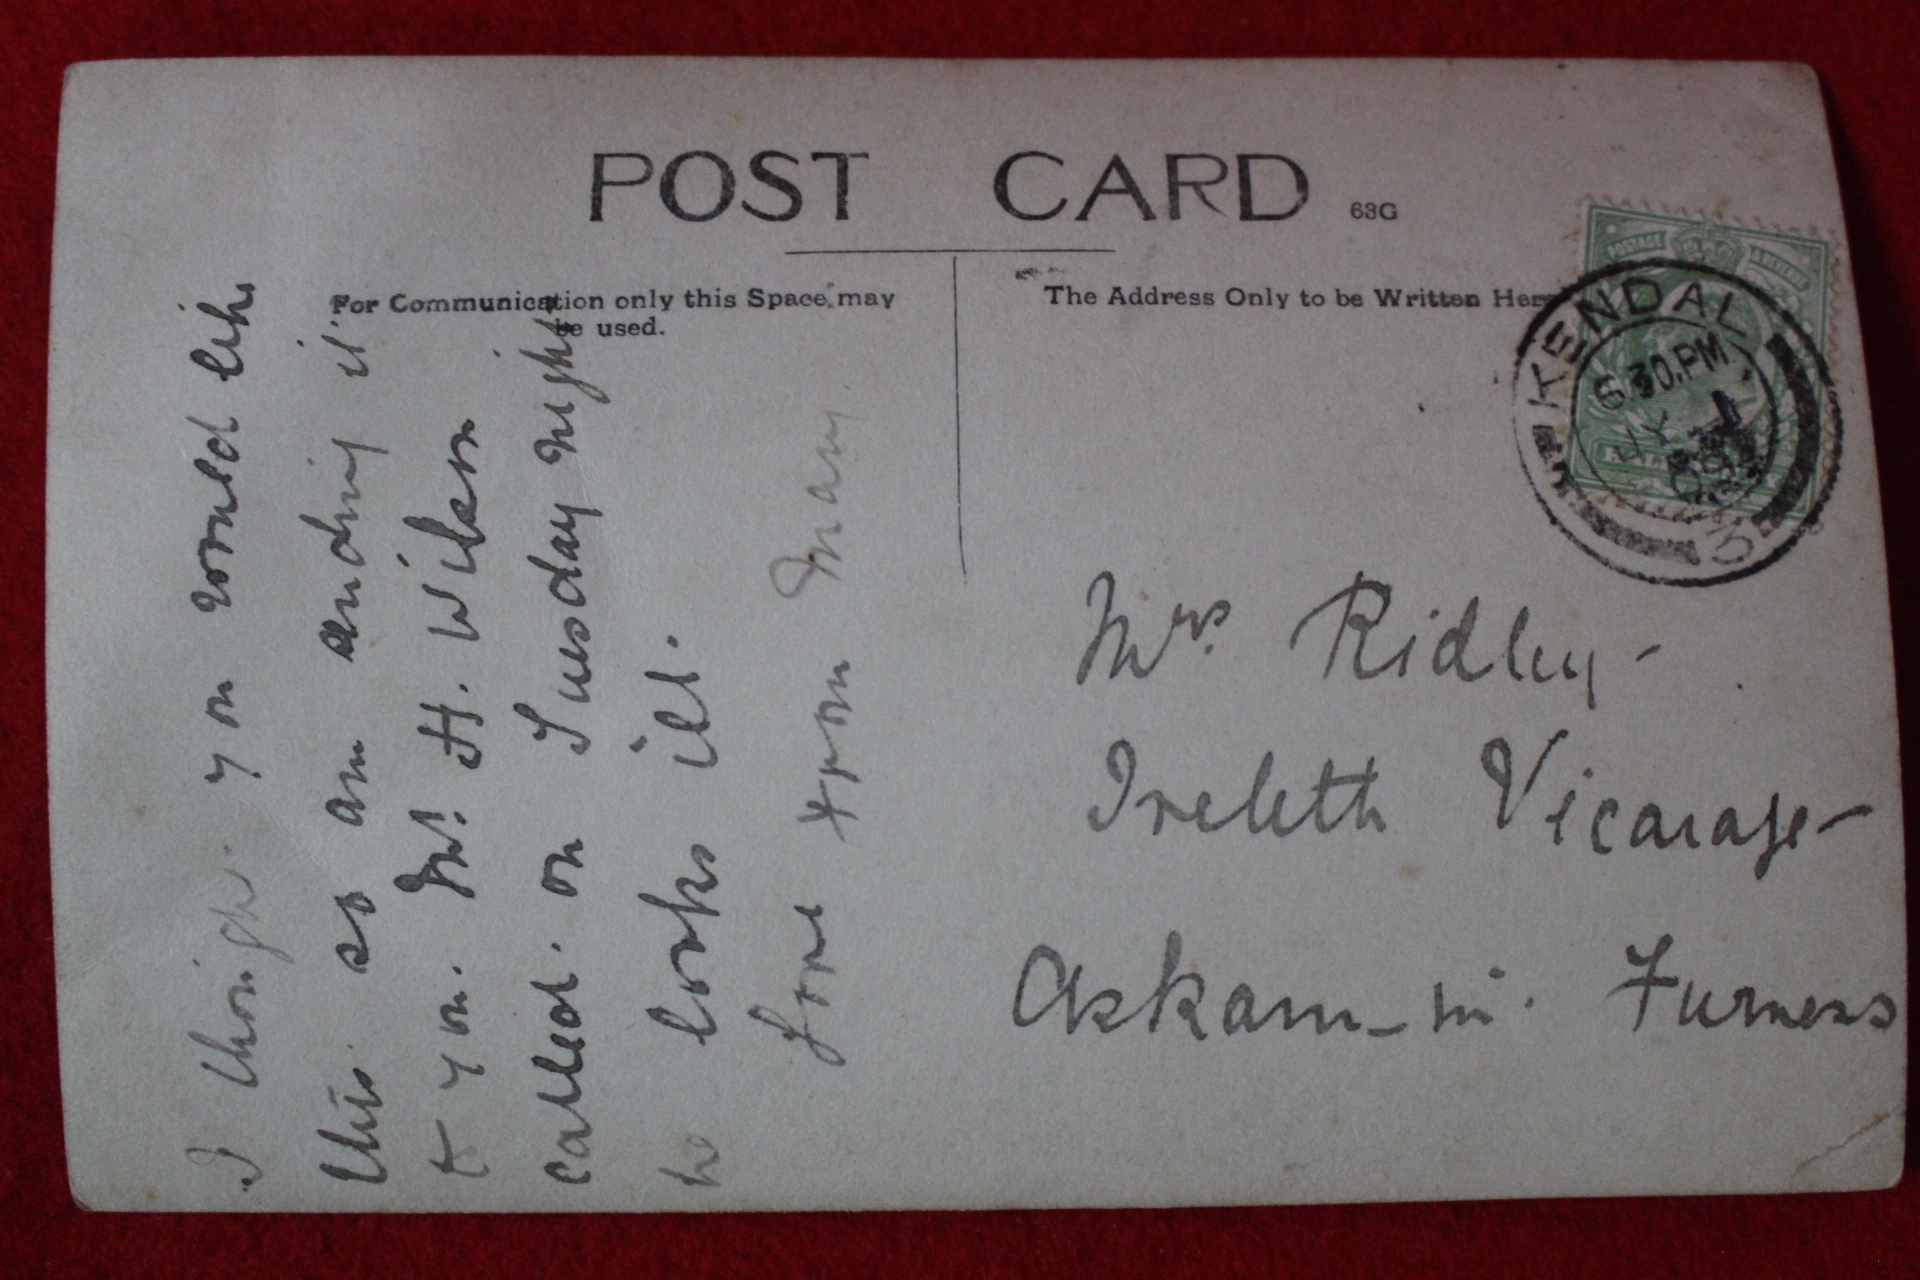 POST CARD 63G
For Communication only this Space may
be used.
The Address Only to be Written Here
POSTAGE & REVENUE
KENDAL
6 30.PM
I thought you would like
this so am sending it
to you. Mr. H. Wilson
called on Tuesday night
he looks ill.
Love from Mary.
Mrs Ridley-
Ireleth Vicarage-
Askam-in-Furness